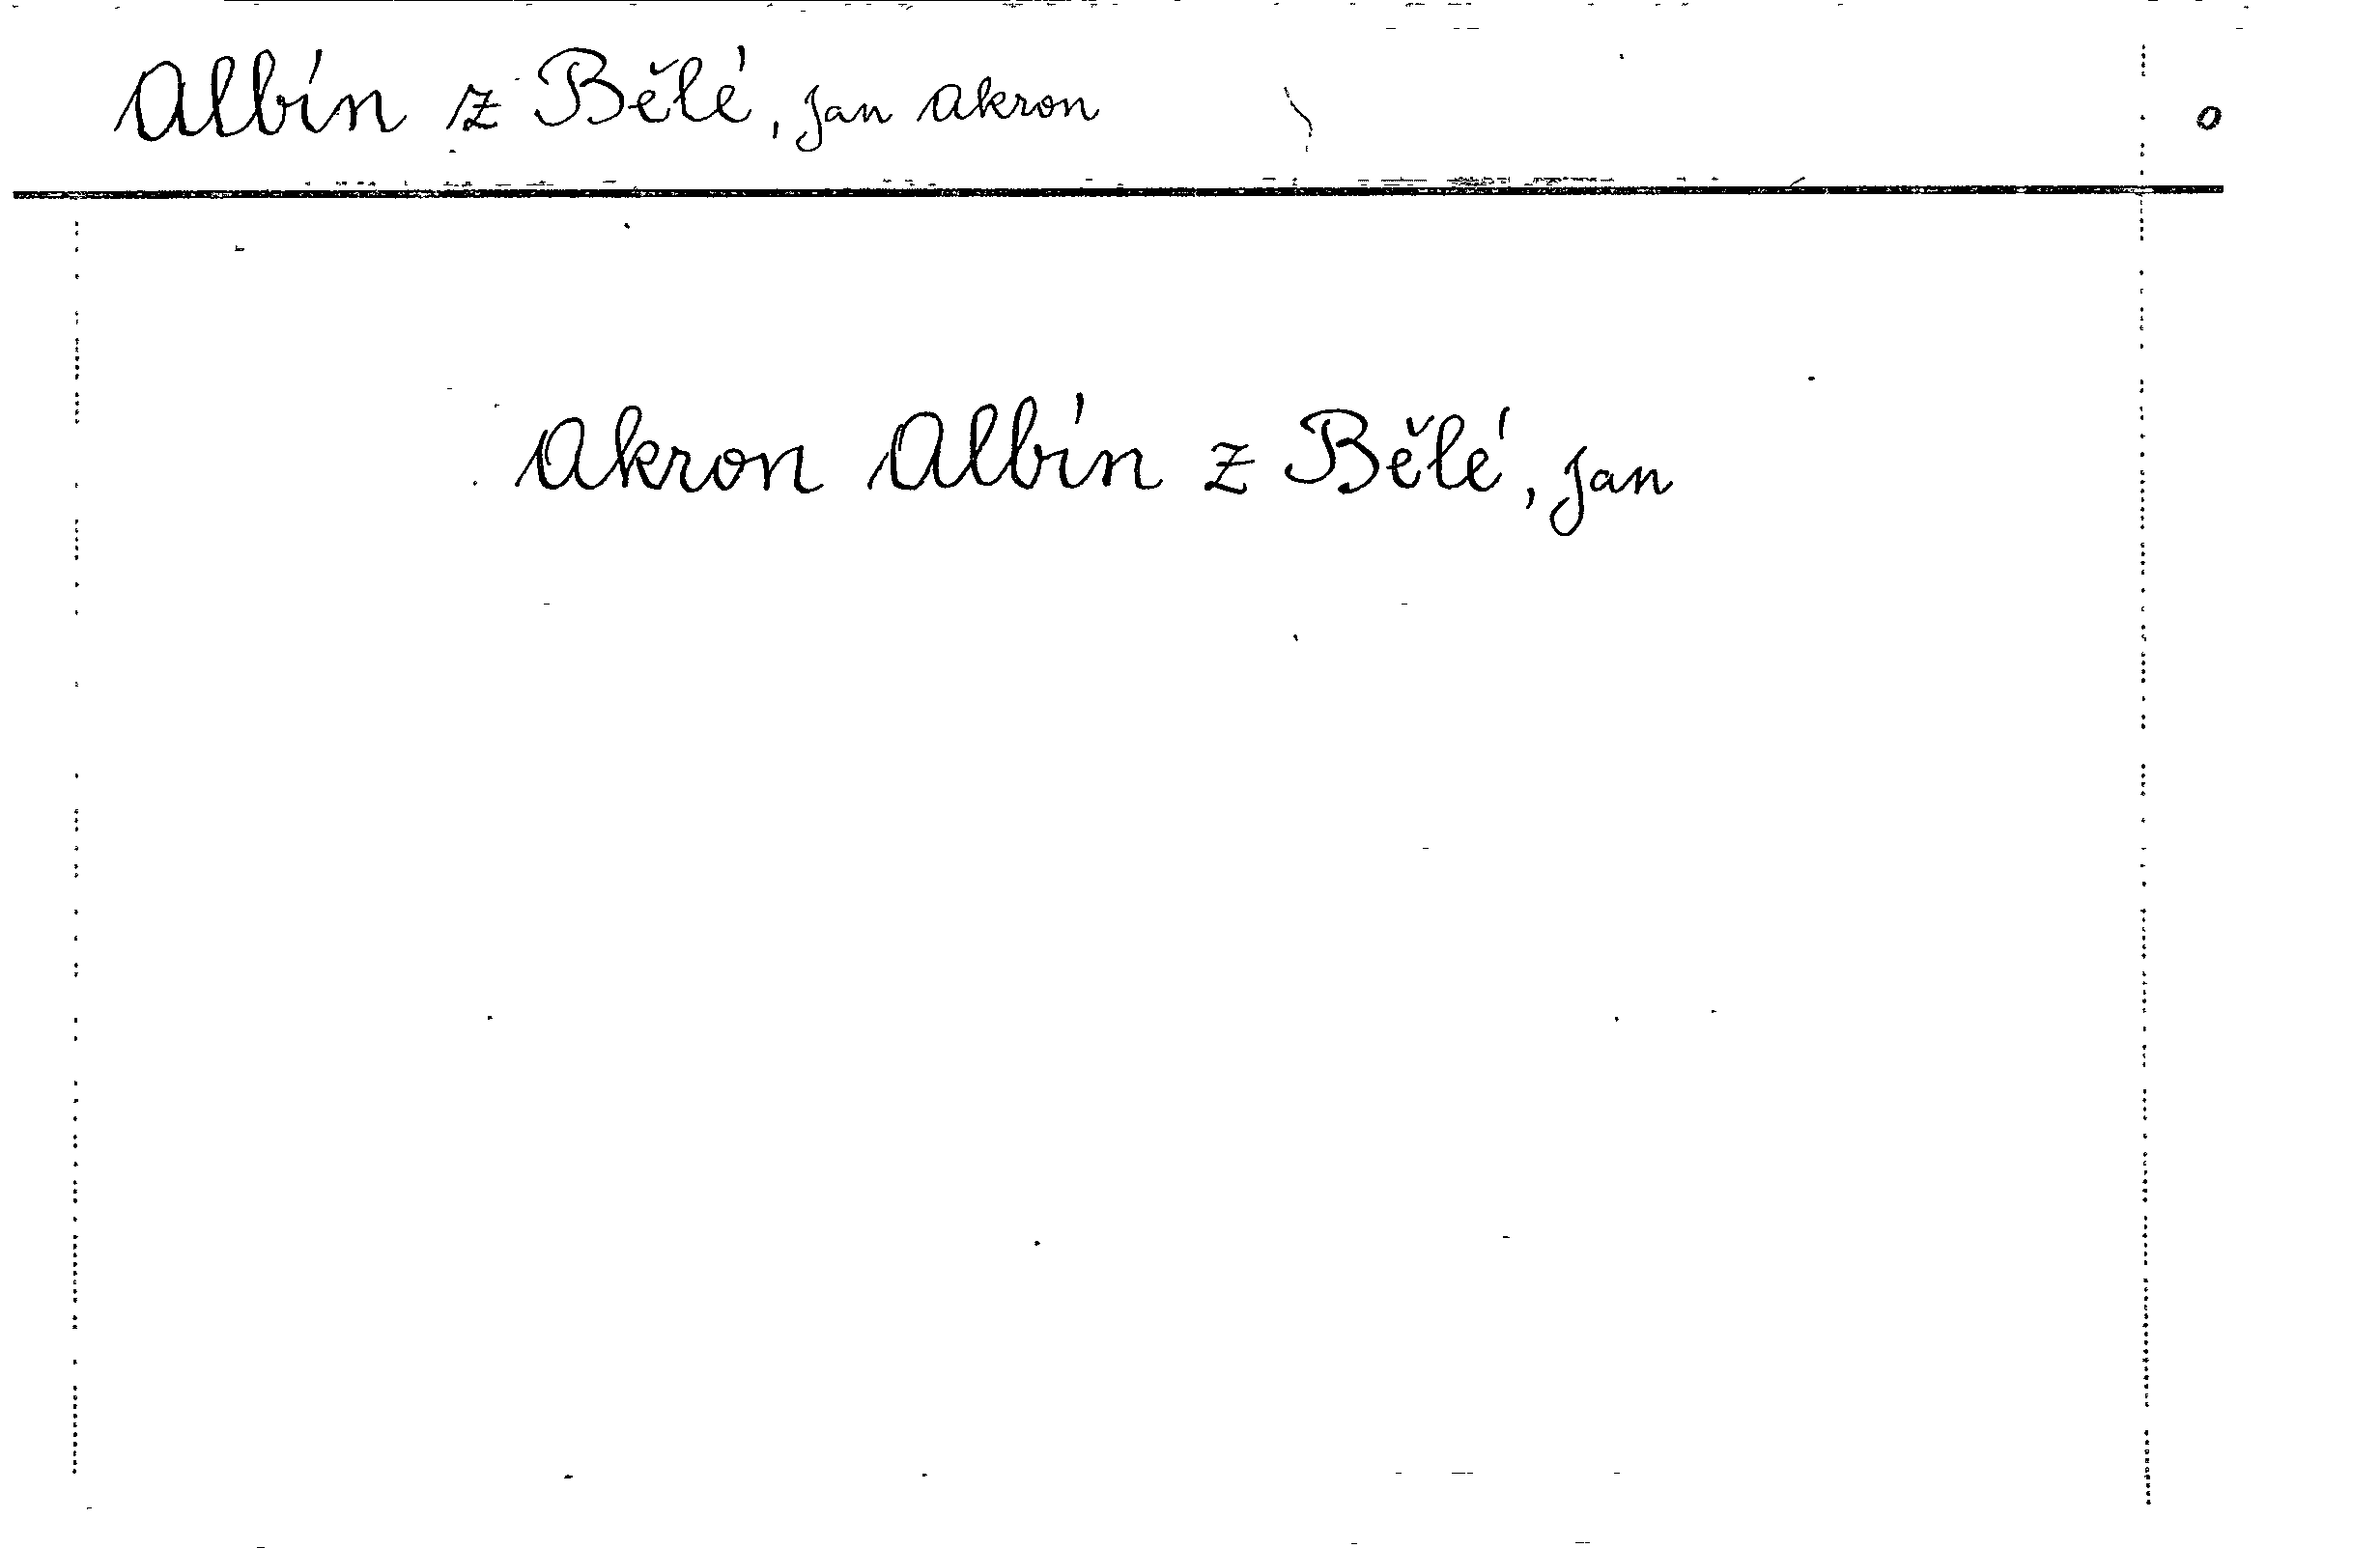 Albín z Bělé, Jan Akron o
Akron Albín z Bělé, Jan